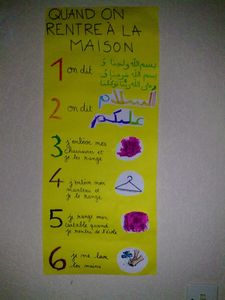 QUAND ON
RENTRE À LA
MAISON
1 on dit
بسم الله ولجنا و
بسم الله خرجنا و
وعلى الله ربنا توكلنا
2 on dit
السلام
عليكم
3 j'enlève mes
chaussures et
je les range
4 j'enlève mon
manteau et
je le range
5 je range mon
cartable quand
je rentre de l'école
6 je me lave
les mains